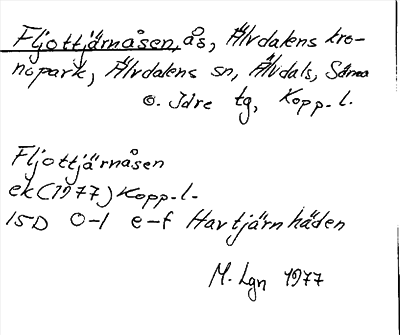 Fljottjärnåsen, ås, Älvdalens kro-
nopark, Älvdalens sn, Älvdals, Särna
o. Idre tg, Kopp-l.
Fljottjärnåsen
ek (1977) Kopp-l-
15D 0-1 e-f Havtjärn häden
M. Lgn 1977